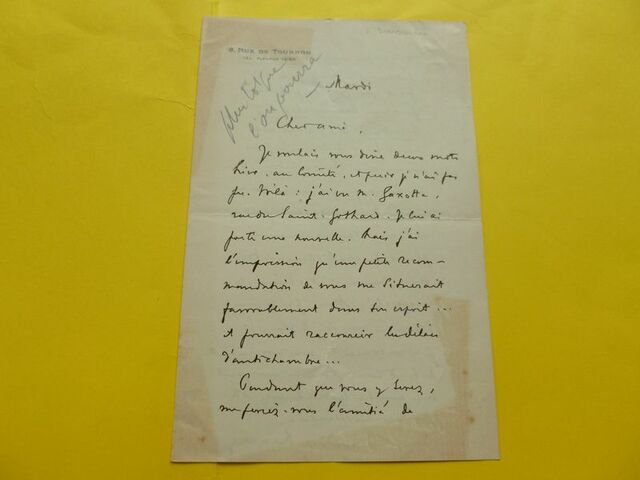 8, RUE DE TOURNON
plus tôt que
l'on pourra
Mardi
Cher ami,
Je voulais vous dire deux mots
hier, au Comité, et puis je n'ai pas
pu. Voilà : j'ai vu M. Gaxotte,
rue du Saint-Gothard. Je lui ai
porté une nouvelle. Mais j'ai
l'impression qu'une petite recom-
mandation de vous me situerait
favorablement dans son esprit...
et pourrait raccourcir les délais
d'antichambre...
Pendant que vous y serez,
me feriez-vous l'amitié de